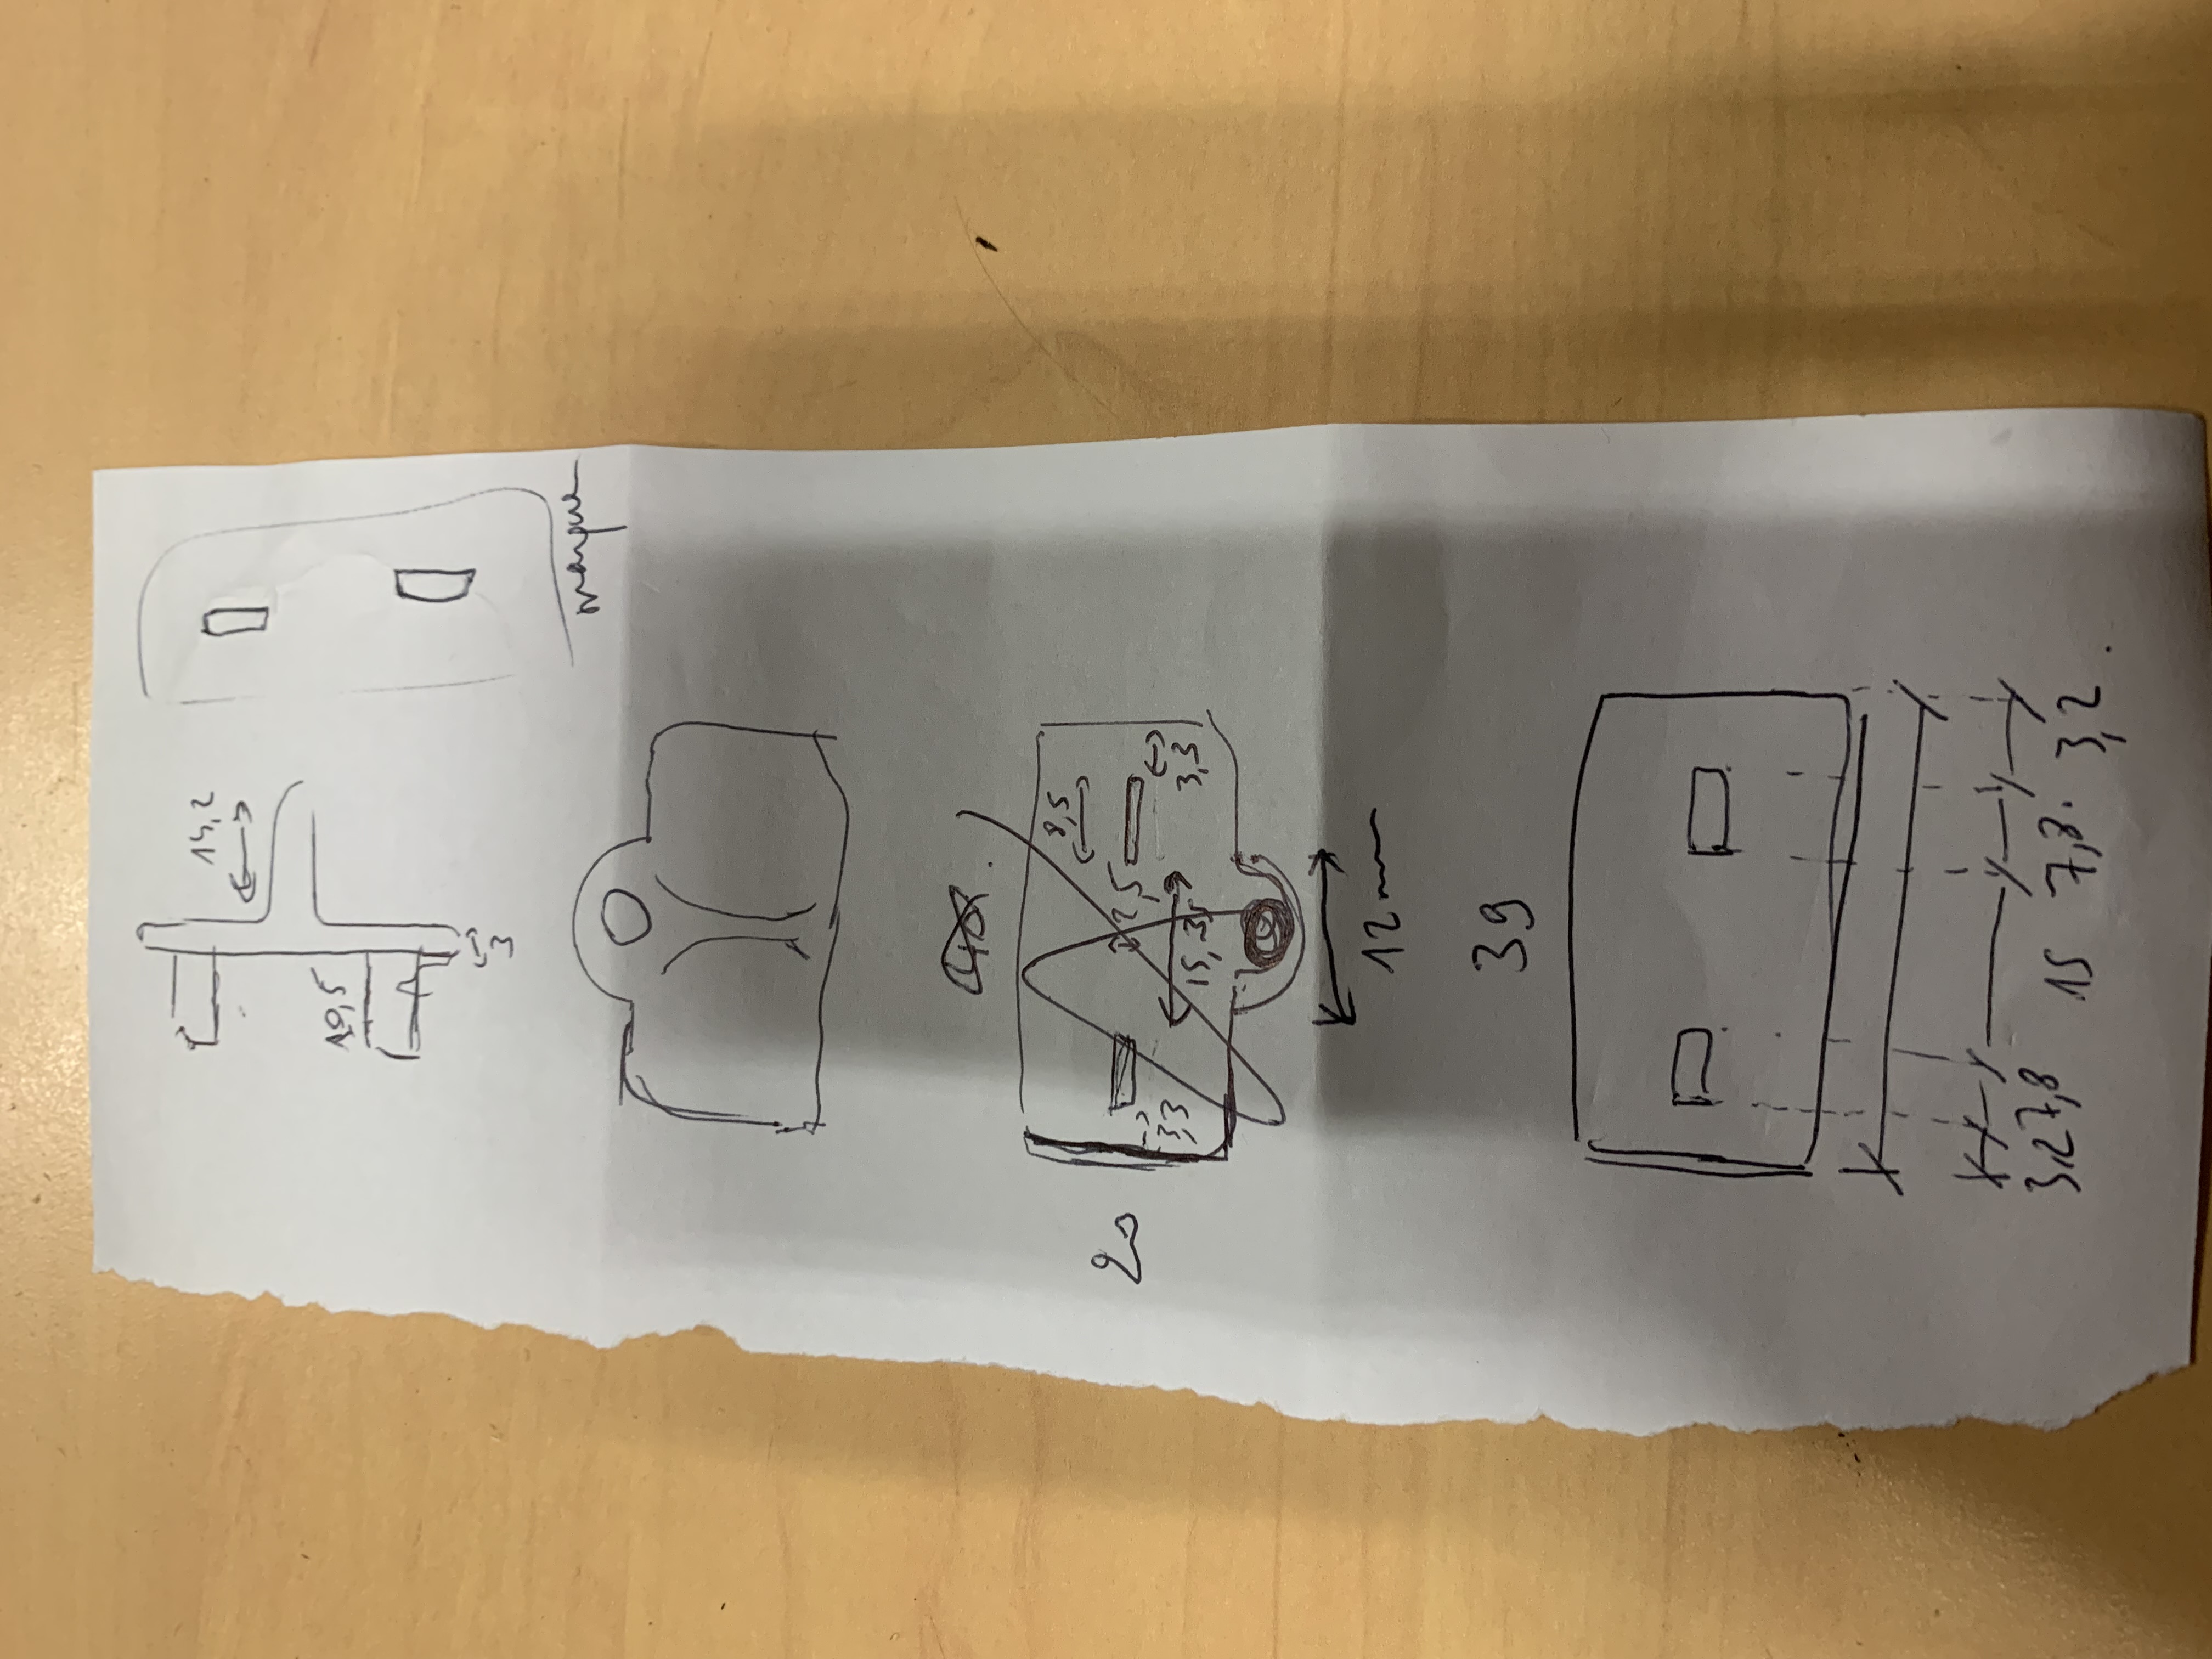 14,2
10,5
3
marque
40
8,5
20
2,5
3,3
15,35
3,3
12mm
39
3,2 7,8 15 7,8 3,2